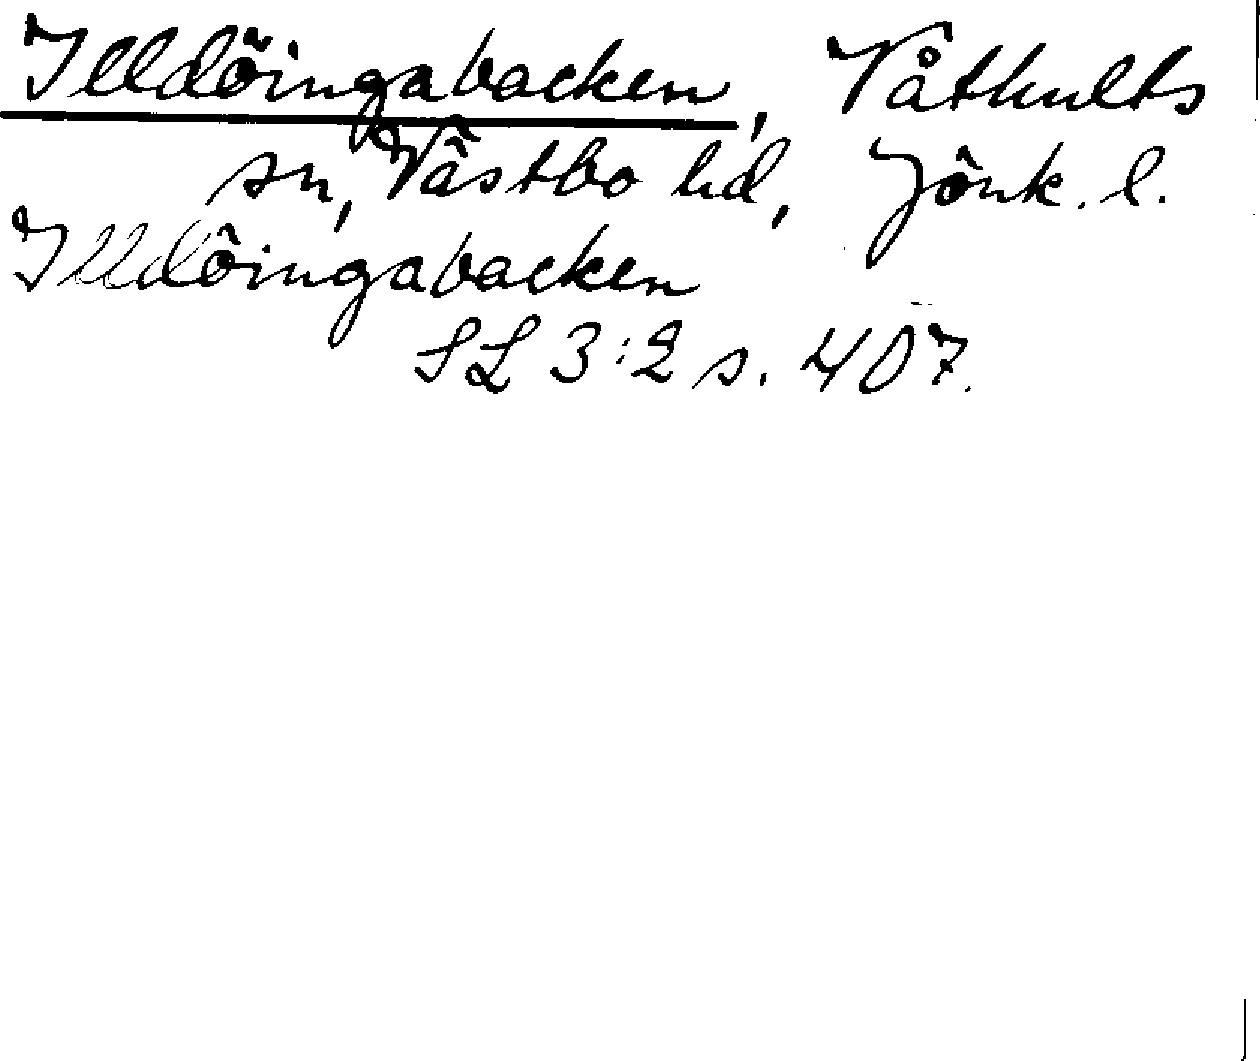 Illdöingabacken, Våthults
sn, Västbo hd, Jönk. l.
Illdöingabacken
SL 3:2 s. 407.